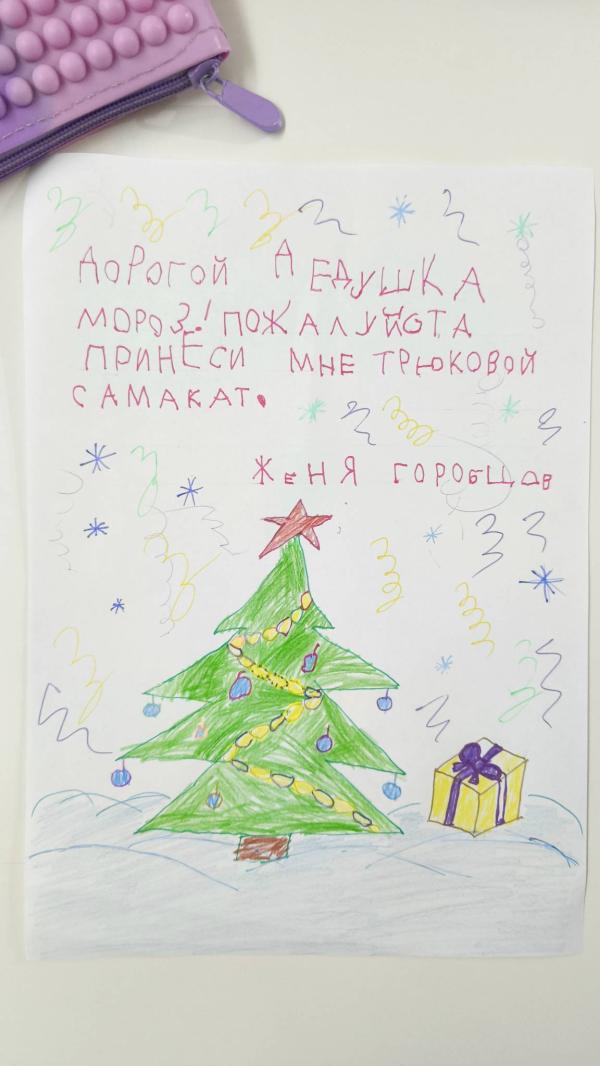 ДОРОГОЙ ДЕДУШКА
МОРОЗ! ПОЖАЛУЙСТА
ПРИНЕСИ МНЕ ТРЮКОВОЙ
САМАКАТ.
ЖеНЯ ГОРОБЦОВ